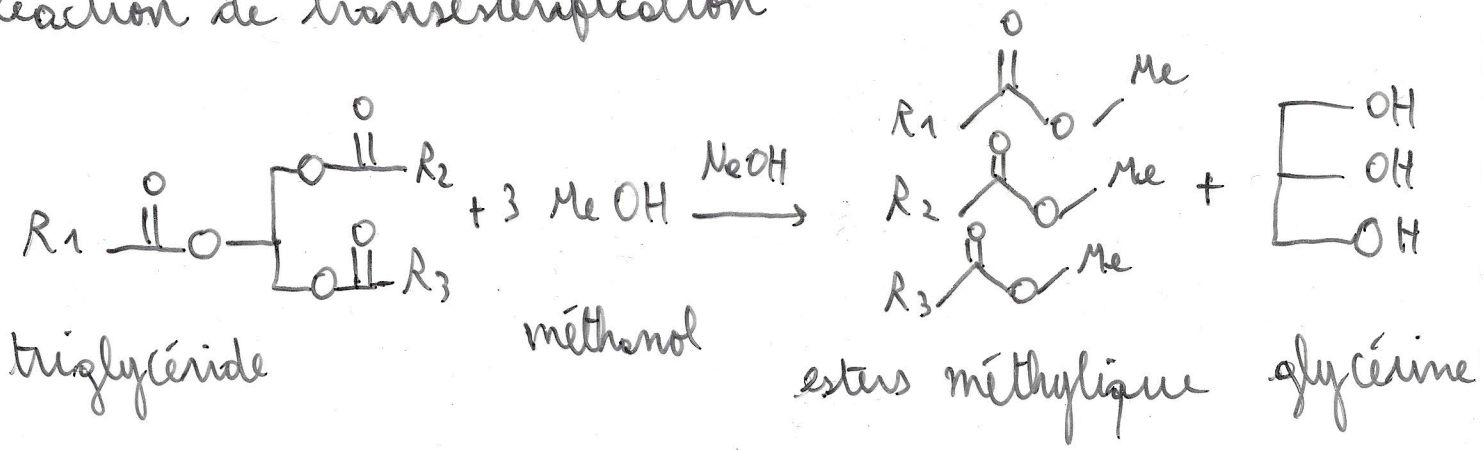 réaction de transestérification
R1 O O O O R2 O O R3 + 3 MeOH NaOH R1 O O Me R2 O O Me R3 O O Me + OH OH OH
triglycéride méthanol esters méthylique glycérine